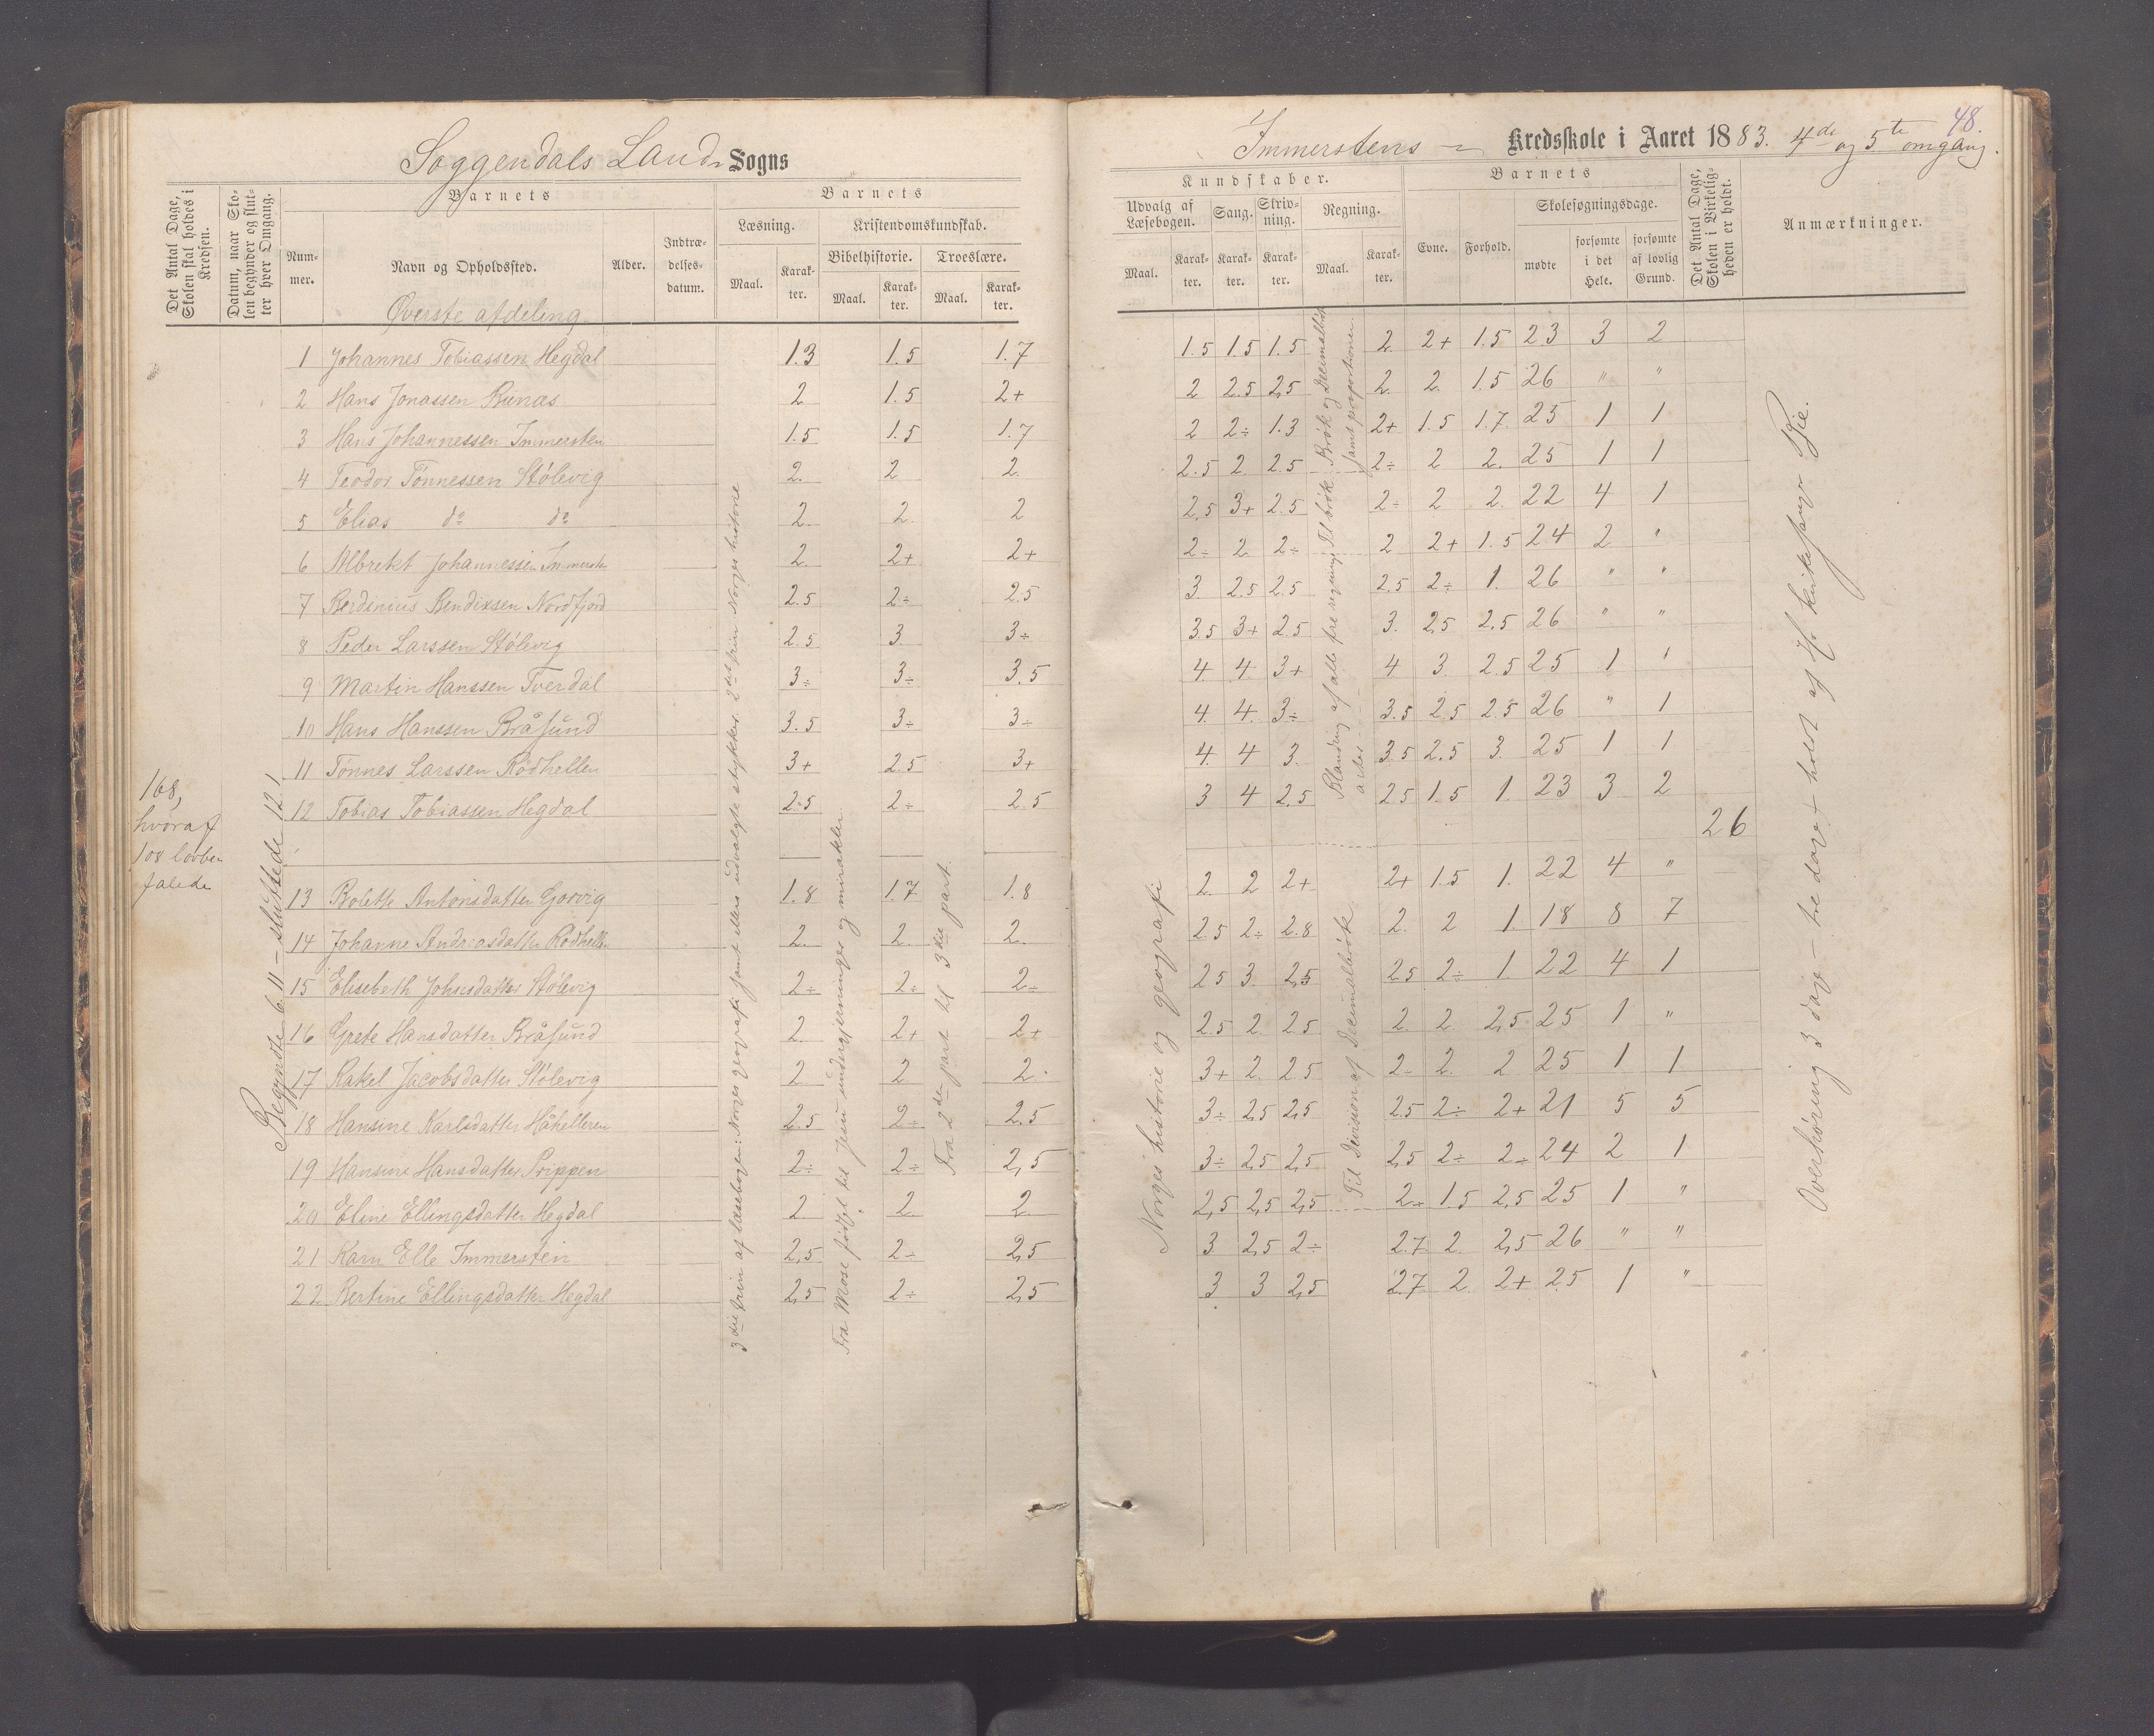 Soggendals Lands Sogns
Det Antal Dage, Skolen skal holdes i Kredsen.
Datum, naar Skolen begynder og slutter hver Omgang.
Barnets
Barnets
Nummer.
Navn og Opholdssted.
Alder.
Indtrædelsesdatum.
Læsning.
Kristendomskundskab.
Bibelhistorie.
Troeslære.
Maal.
Karakter.
Maal.
Karakter.
Maal.
Karakter.
Øverste afdeling
1 Johannes Tobiassen Hegdal 1.3 1.5 1.7
2 Hans Jonassen Runæs 2 1.5 2+
3 Hans Johannessen Immersten 1.5 1.5 1.7
4 Teodor Tönnessen Stölevig 2. 2 2.
5 Elias do do 2. 2. 2
6 Albrekt Johannessen Immersten 2. 2+ 2+
7 Berdinius Bendixsen Nordfjord 2.5 2÷ 2.5
8 Peder Larssen Stölevig 2.5 3 3÷
9 Martin Hanssen Tverdal 3÷ 3÷ 3.5
10 Hans Hanssen Bråsund 3.5 3÷ 3÷
11 Tönnes Larssen Rödhellen 3+ 2.5 3+
12 Tobias Tobiassen Hegdal 2.5 2÷ 2.5
13 Bolette Antonsdatter 1.8 1.7 1.8
14 Johanne Andreasdatter Rödhellen 2. 2. 2.
15 Elisebeth Johnsdatter Stölevig 2÷ 2÷ 2÷
16 Grete Hansdatter Bråsund 2. 2+ 2+
17 Rakel Jacobsdatter Stölevig 2 2 2.
18 Hansine Karlsdatter Håhelleren 2.5 2÷ 2.5
19 Hansine Hansdatter Prippen 2÷ 2÷ 2,5
20 Eline Ellingsdatter Hegdal 2 2. 2
21 Karn Elle Immerstein 2,5 2÷ 2,5
22 Bertine Ellingsdatter Hegdal 2,5 2÷ 2,5
168,
hvoraf
108 lovbe-
falede
Begyndte 6/11 – sluttede 12/1
3die trin af læsebogen: Norges geografi samt ellers udvalgte stykker. 2det trin Norges historie
Fra Mose födsel til Jesu undergjerninger og mirakler
Fra 2den part til 3die part.
48.
Immerstens Kredsskole i Aaret 1883. 4de og 5te omgang.
Kundskaber.
Barnets
Udvalg af Læsebogen.
Sang.
Skrivning.
Regning.
Evne.
Forhold.
Skolesøgningsdage.
Maal.
Karakter.
Karakter.
Karakter.
Maal.
Karakter.
mødte
forsømte i det Hele.
forsømte af lovlig Grund.
Det Antal Dage, Skolen i Virkeligheden er holdt.
Anmærkninger.
1.5 1.5 1.5 2. 2+ 1.5 23 3 2
2 2.5 2,5 2. 2. 1.5 26 " "
2 2÷ 1.3 2+ 1.5 1.7. 25 1 1
2.5 2 2.5 2÷ 2 2. 25 1 1
2,5 3+ 2.5 2÷ 2 2. 22 4 1
2÷ 2 2÷ 2 2+ 1.5 24 2 "
3. 2.5 2.5 2.5 2÷ 1. 26 " "
3.5 3+ 2.5 3. 2,5 2.5 26 " "
4. 4. 3+ 4 3. 2.5 25 1 1
4. 4. 3÷ 3.5 2.5 2.5 26 " 1
4. 4 3. 3.5 2.5 3. 25 1 1
3 4 2.5 2.5 1.5 1. 23 3 2
26
2. 2 2+ 2+ 1.5 1. 22 4 "
2.5 2÷ 2.8 2. 2 1. 18 8 7
2.5 3. 2,5 2.5 2÷ 1 22 4 1
2.5 2. 2.5 2. 2. 2,5 25 1 "
3+ 2. 2.5 2÷ 2. 2 25 1 1
3÷ 2,5 2,5 2.5 2÷ 2+ 21 5 5
3÷ 2,5 2,5 2,5 2÷ 2÷ 24 2 1
2,5 2,5 2,5 2÷ 1.5 2,5 25 1 "
3. 2,5 2÷ 2.7 2. 2,5 26 " "
3 3 2,5 2.7 2 2+ 25 1 "
Norges historie og geografi
Blanding af alle fire regningsarter – Til brök: Brök og Decimalbrök samt proportioner.
Til Division af Decimalbrök
Overhøring 3 dage – tre dage holdt af Hr. kirkesanger Eie.